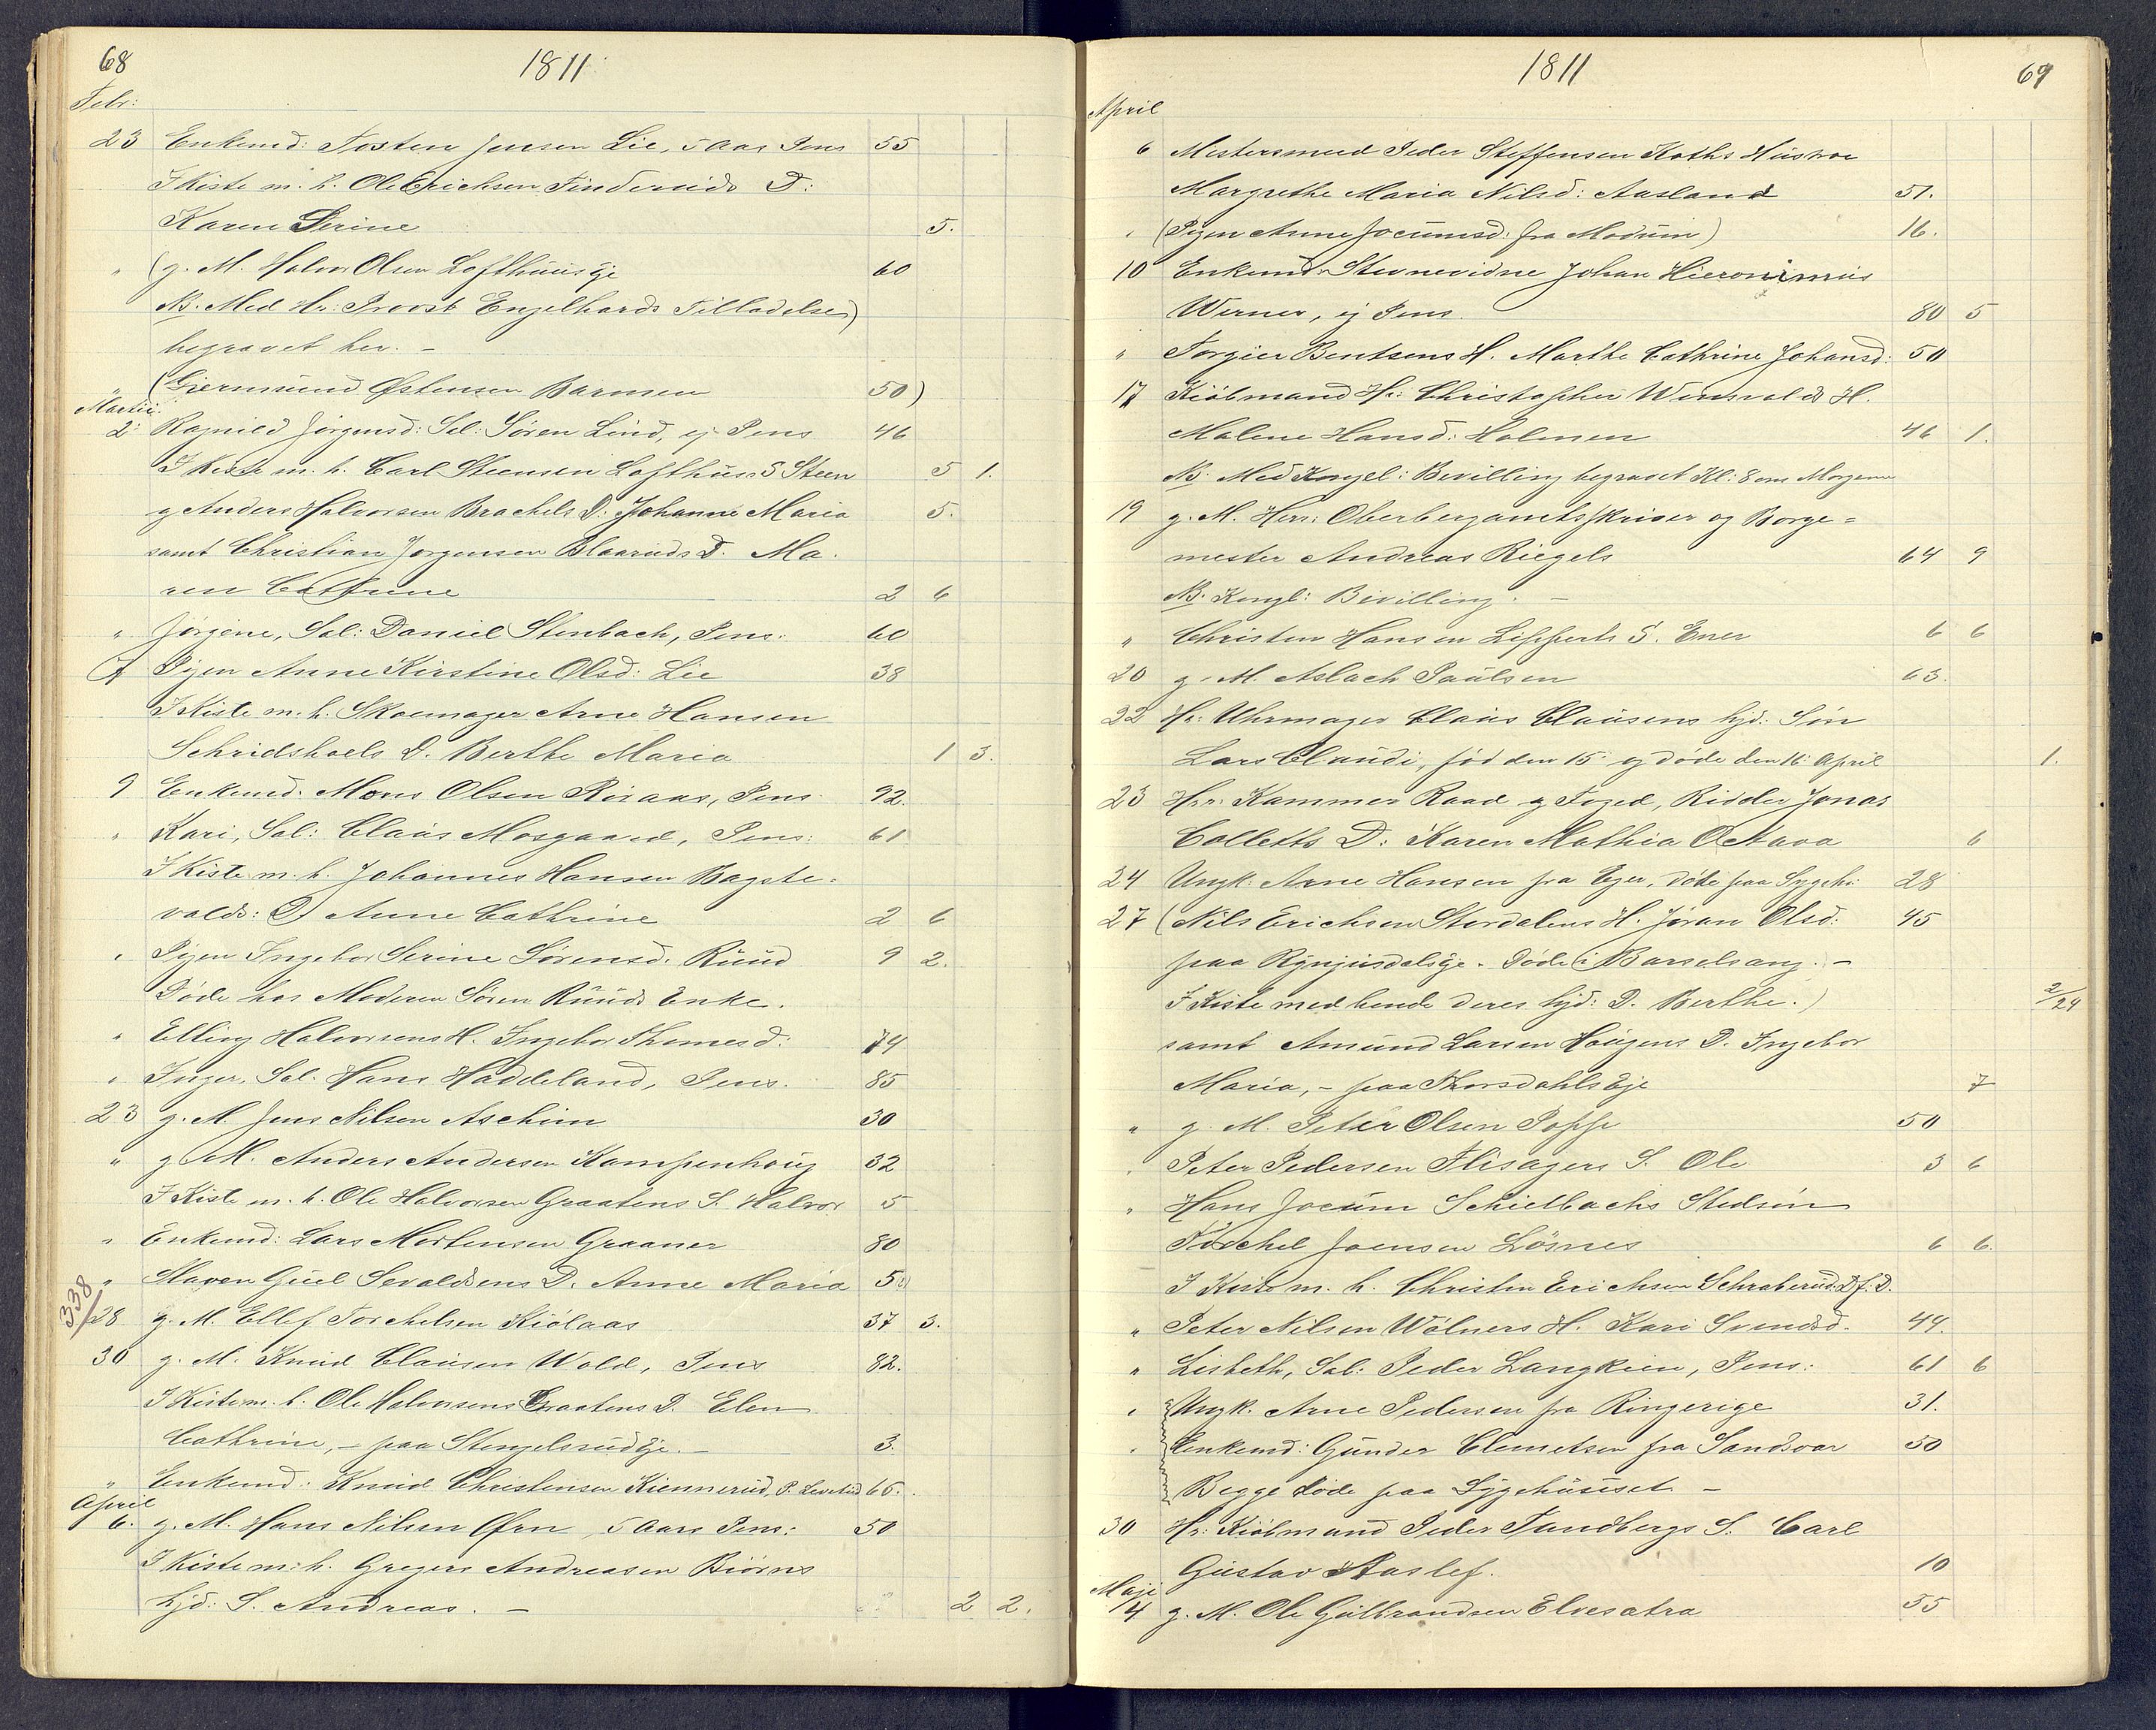 68
1811
Febr:
23 Enkemd: Tosten Jensen Lie, 5 Aar Pens 55
I Kiste m. h. Ole Erichsen Tinderuds D:
Karen Serine 5.
" (g. M. Halvor Olsen Lofthuus Eje 60
NB. Med Hr: Provst Engelhards Tilladelse)
begravet her. –
" (Giermund Østensen Barmen 50)
Martii
2 Ragnild Jørgensd: Sal: Søren Lind, ej Pens 46
I Kiste m. h. Carl Steensen Lofthuus S Steen 5 1.
og Anders Halvorsen Brachels D: Johanne Maria 5.
samt Christian Jørgensen Blaaruds D. Ma-
ren Cathrine 2 6
" Jørgine, Sal: Daniel Stenbach, Pens: 60
7 Pigen Anne Kirstine Olsd: Lie 38
I Kiste m. h. Skoemager Arne Hansen
Schridshoels D. Berthe Maria 1 3.
9 Enkemd. Mons Olsen Riisaas, Pens 92.
" Kari, Sal: Claus Mosgaard, Pens: 61
I Kiste m. h. Johannes Hansen Bagste-
volds: D. Anne Cathrine 2 6
" Pigen Ingebor Serine Sørensd. Ruud 9 2.
Døde hos Moderen Søren Ruuds Enke.
" Elling Halvorsens H. Ingebor Thomesd: 74
" Inger, Sal. Hans Haddeland, Pens. 85
23 g. M. Jens Nilsen Aschim 30
" g. M. Anders Andersen Kampenhoug 32
I Kiste m. h. Ole Halvorsen Graatens S. Halvor 5
" Enkemd: Lars Mortensen Graaner 80
" Maren Guel Sevaldsens D. Anne Maria 50
338/
28 g. M. Ellef Torchelsen Kiølaas 37 3.
30 g. M. Knud Clausen Wold, Pens 82.
I Kiste m. h. Ole Halvorsens Graatens D. Elen
Cathrine, – paa Stengelsrud Eje. – 3.
" Enkemd: Knud Christensen Kiennerud, P. Levetid 65.
April
6. g. M. Hans Nilsen Øfrn, 5 Aars Pens: 50
I Kiste m. h. Gregers Andreasen Biørns
hjd: S. Andreas. – 2 2.
1811
69
April
6 Mestersmed Peder Steffensen Koths Hustroe
Margrethe Maria Nilsd: Aasland 51.
" (Pigen Anne Jocumsd: fra Modum) 16.
10 Enkemd Stevnevidne Johan Hieronimus
Werner, ej Pens. 80 5
" Torgier Bentsens H. Marthe Cathrine Johansd: 50
17 Kiøbmand Hr: Christopher Winsvolds H.
Malene Hansd: Holmen 46 1.
NB. Med Kongel: Bevilling begravet Kl: 8 om Morgenen
19 g. M. Herr: Oberbergamtsskriver og Borge=
mester Andreas Riegels 64 9
NB. Kongl: Bevilling. –
" Christen Hansen Lipperts S. Ener 6 6
20 g. M. Aslach Paulsen 63.
22 Hr: Uhrmager Claus Clausens hjd: Søn
Lars Claudi, fød den 15 og døde den 16 April 1.
23 Hrr: Kammer Raad og Foged, Ridder Jonas
Colletts D: Karen Mathia Octava 6
24 Ungk. Arne Hansen fra Eger, døde paa Sygehu: 28
27 (Nils Erichsen Stordalens H. Jøran Olsd: 45
paa Ryngusdals Eje. Døde i Barselsang. –
I Kiste med hende deres hjd: D. Berthe.) 2/24
samt Amund Larsen Hougens D. Ingebor
Maria, – paa Thorsdahls Eje 7
" g. M. Peter Olsen Poppe 50
" Peter Pedersen Flisagers S. Ole 3 6
" Hans Jocum Schielbachs Stedsøn
Torchel Joensen Løsnes 6 6.
I Kiste m. h. Christen Erichsen Schraberud. D f. D.
" Peter Nilsen Wølners H. Kari Svendsd. 44.
" Lisbeth, Sal: Peder Langkien, Pens: 61 6
" Ungk. Arne Pedersen fra Ringerige 31.
" Enkemd: Gunder Clemetsen fra Sandsvær 50
Begge døde paa Sygehuuset –
30 Hr: Kiøbmand Peder Tandbergs S. Carl
Gustav Aaslef. 10
Maji
4 g. M. Ole Gulbrandsen Elvesatra 55